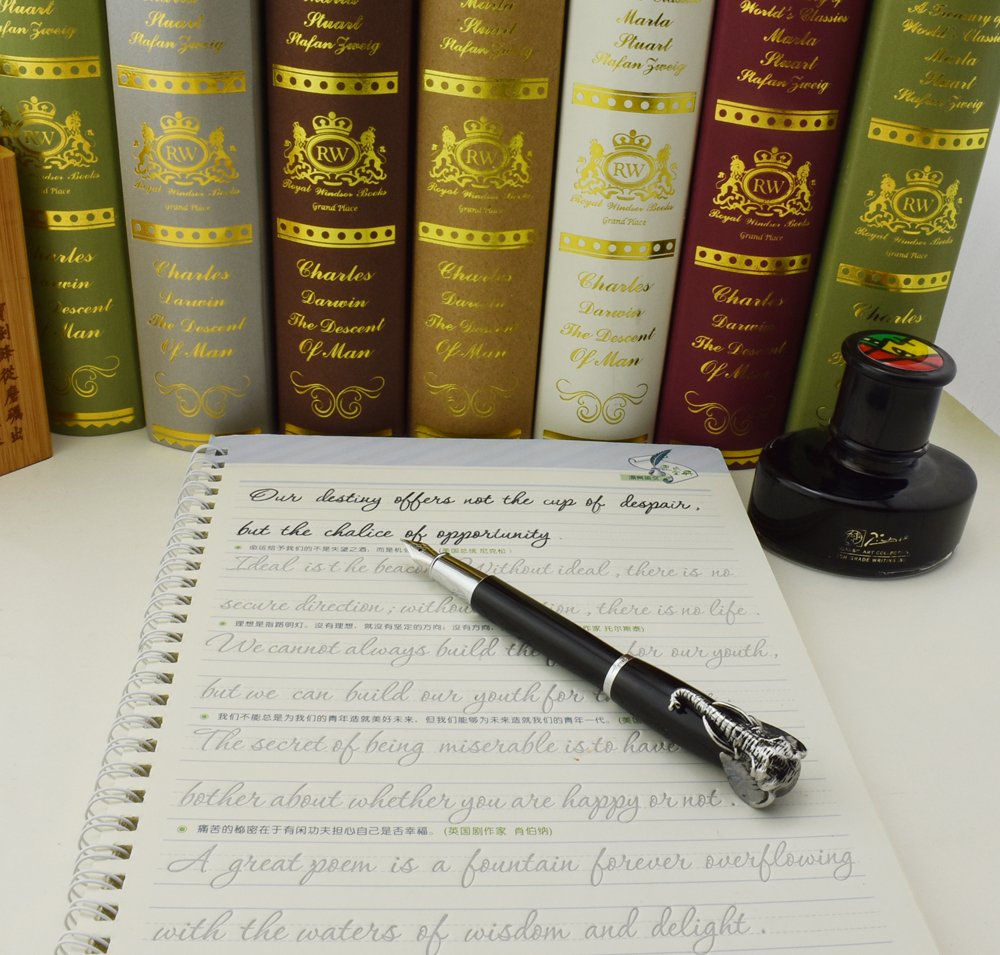 Stuart
Stafan Zweig
RW
Grand Place
Descent
Man
Marla
Stuart
Stafan Zweig
RW
Royal Windsor Books
Grand Place
Charles
Darwin
The Descent
Of Man
Marla
Stuart
Stafan Zweig
RW
Royal Windsor Books
Grand Place
Charles
Darwin
The Descent
Of Man
Marla
Stuart
Stafan Zweig
RW
Royal Windsor Books
Grand Place
Charles
Darwin
The Descent
Of Man
Marla
Stuart
Stafan Zweig
RW
Royal Windsor Books
Grand Place
Charles
Darwin
The Descent
Of Man
World's Classics
Marla
Stuart
Stafan Zweig
RW
Royal Windsor Books
Grand Place
Charles
Darwin
The Descent
Of Man
A Treasury of
World's Classics
Marla
Stuart
Stafan Zweig
RW
Royal Windsor Books
Grand Place
Charles
劍鋒從磨礪出
Our destiny offers not the cup of despair,
but the chalice of opportunity.
命运给予我们的不是失望之酒，而是机 (美国总统 尼克松)
Ideal is the beacon. Without ideal, there is no
secure direction; without direction, there is no life.
理想是指路明灯。没有理想，就没有坚定的方向；没有方向， 作家 托尔斯泰)
We cannot always build the for our youth,
but we can build our youth for t
我们不能总是为我们的青年造就美好未来，但我们能够为未来造就我们的青年一代。(美国
The secret of being miserable is to have
bother about whether you are happy or not.
痛苦的秘密在于有闲功夫担心自己是否幸福。(英国剧作家 肖伯纳)
A great poem is a fountain forever overflowing
with the waters of wisdom and delight.
ART COLLECTION
GRADE WRITING INK